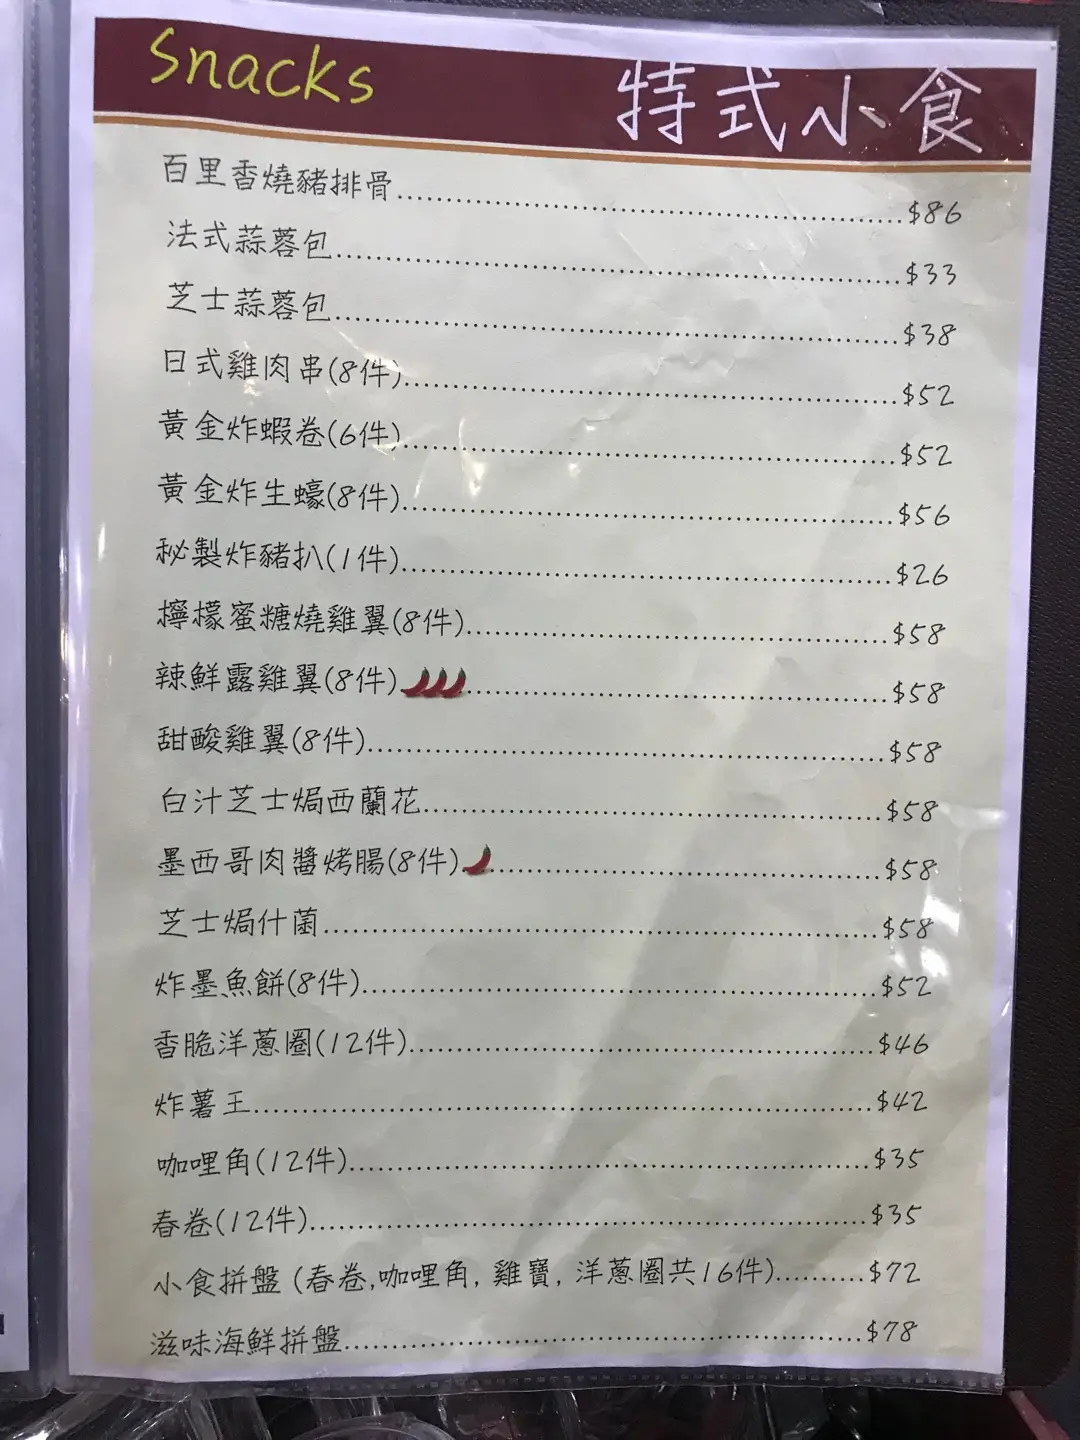 Snacks 特式小食
百里香燒豬排骨..........$86
法式蒜蓉包..........$33
芝士蒜蓉包..........$38
日式雞肉串(8件)..........$52
黃金炸蝦卷(6件)..........$52
黃金炸生蠔(8件)..........$56
秘製炸豬扒(1件)..........$26
檸檬蜜糖燒雞翼(8件)..........$58
辣鮮露雞翼(8件)..........$58
甜酸雞翼(8件)..........$58
白汁芝士焗西蘭花..........$58
墨西哥肉醬烤腸(8件)..........$58
芝士焗什菌..........$58
炸墨魚餅(8件)..........$52
香脆洋蔥圈(12件)..........$46
炸薯王..........$42
咖哩角(12件)..........$35
春卷(12件)..........$35
小食拼盤 (春卷,咖哩角, 雞寶, 洋蔥圈共16件)..........$72
滋味海鮮拼盤..........$78